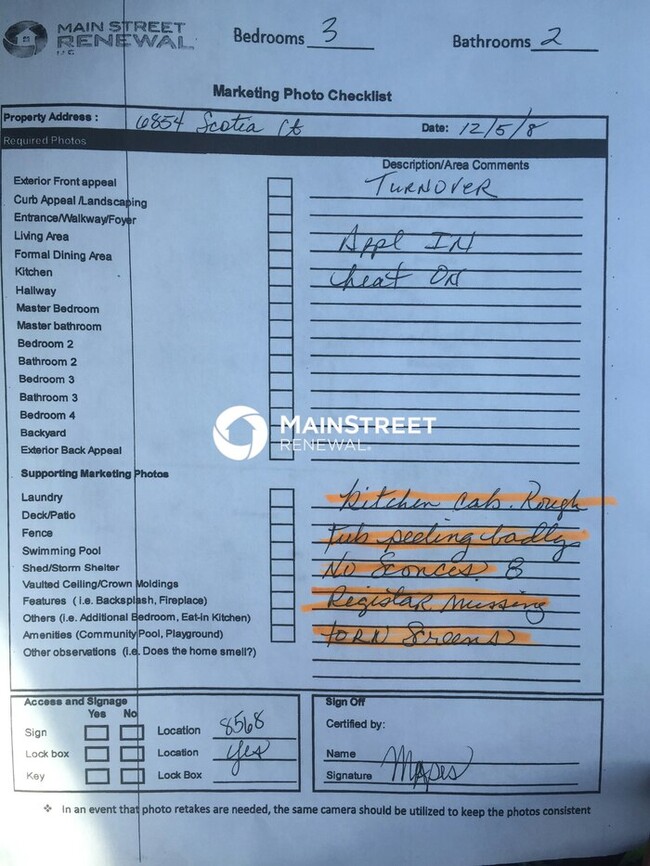 MAIN STREET
RENEWAL
LLC
Bedrooms 3
Bathrooms 2
Marketing Photo Checklist
Property Address : 6854 Scotia Ct Date: 12/5/8
Required Photos
Description/Area Comments
Exterior Front appeal TURNOVER
Curb Appeal /Landscaping
Entrance/Walkway/Foyer
Living Area Appl IN
Formal Dining Area
Kitchen heat ON
Hallway
Master Bedroom
Master bathroom
Bedroom 2
Bathroom 2
Bedroom 3
Bathroom 3
Bedroom 4
Backyard
Exterior Back Appeal
MAINSTREET
RENEWAL®
Supporting Marketing Photos
Laundry Kitchen cab. Rough
Deck/Patio
Fence Tub peeling badly
Swimming Pool
Shed/Storm Shelter No Sconces 8
Vaulted Ceiling/Crown Moldings
Features ( i.e. Backsplash, Fireplace) Registar Missing
Others (i.e. Additional Bedroom, Eat-in Kitchen)
Amenities (Community Pool, Playground) torn Screens
Other observations (i.e. Does the home smell?)
Access and Signage
Yes No
Sign Location 8568
Lock box Location yes
Key Lock Box
Sign Off
Certified by:
Name
Signature Mapes
❖ In an event that photo retakes are needed, the same camera should be utilized to keep the photos consistent